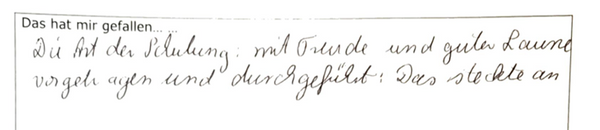 Das hat mir gefallen......
Die Art der Schulung: mit Freude und guter Laune
vorgetragen und durchgeführt! Das steckte an